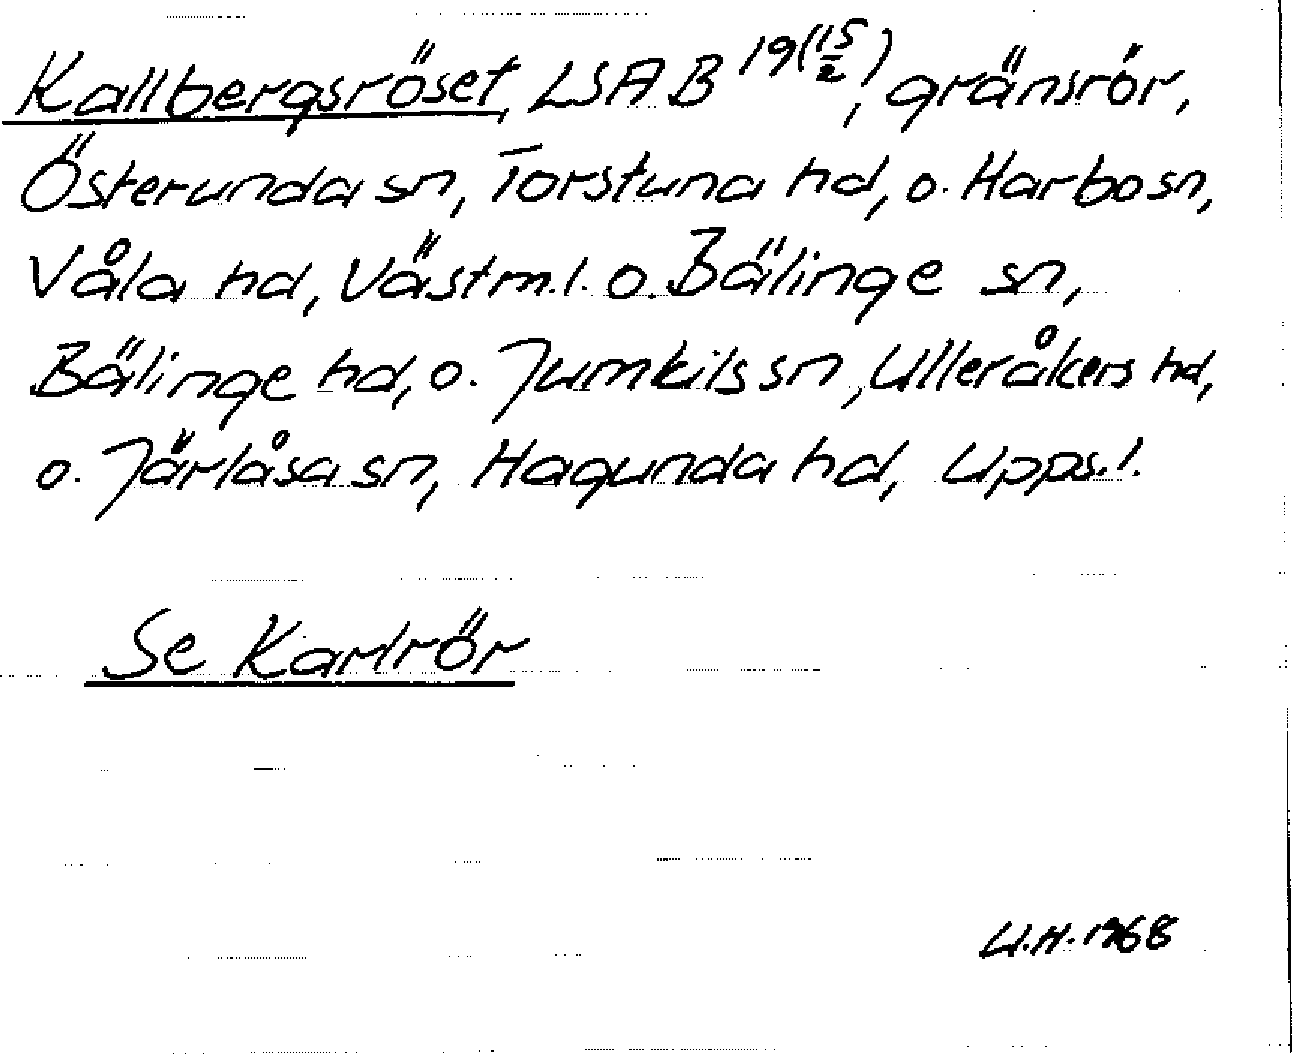 Kallbergsröset, LSA B 19(15/2), gränsrör,
Österunda sn, Torstuna hd, o. Harbo sn,
Våla hd, Västm.l. o. Bälinge sn,
Bälinge hd, o. Jumkils sn, Ulleråkers hd,
o. Järlåsa sn, Hagunda hd, Upps.l.
Se Karlrör
U.H. 1968